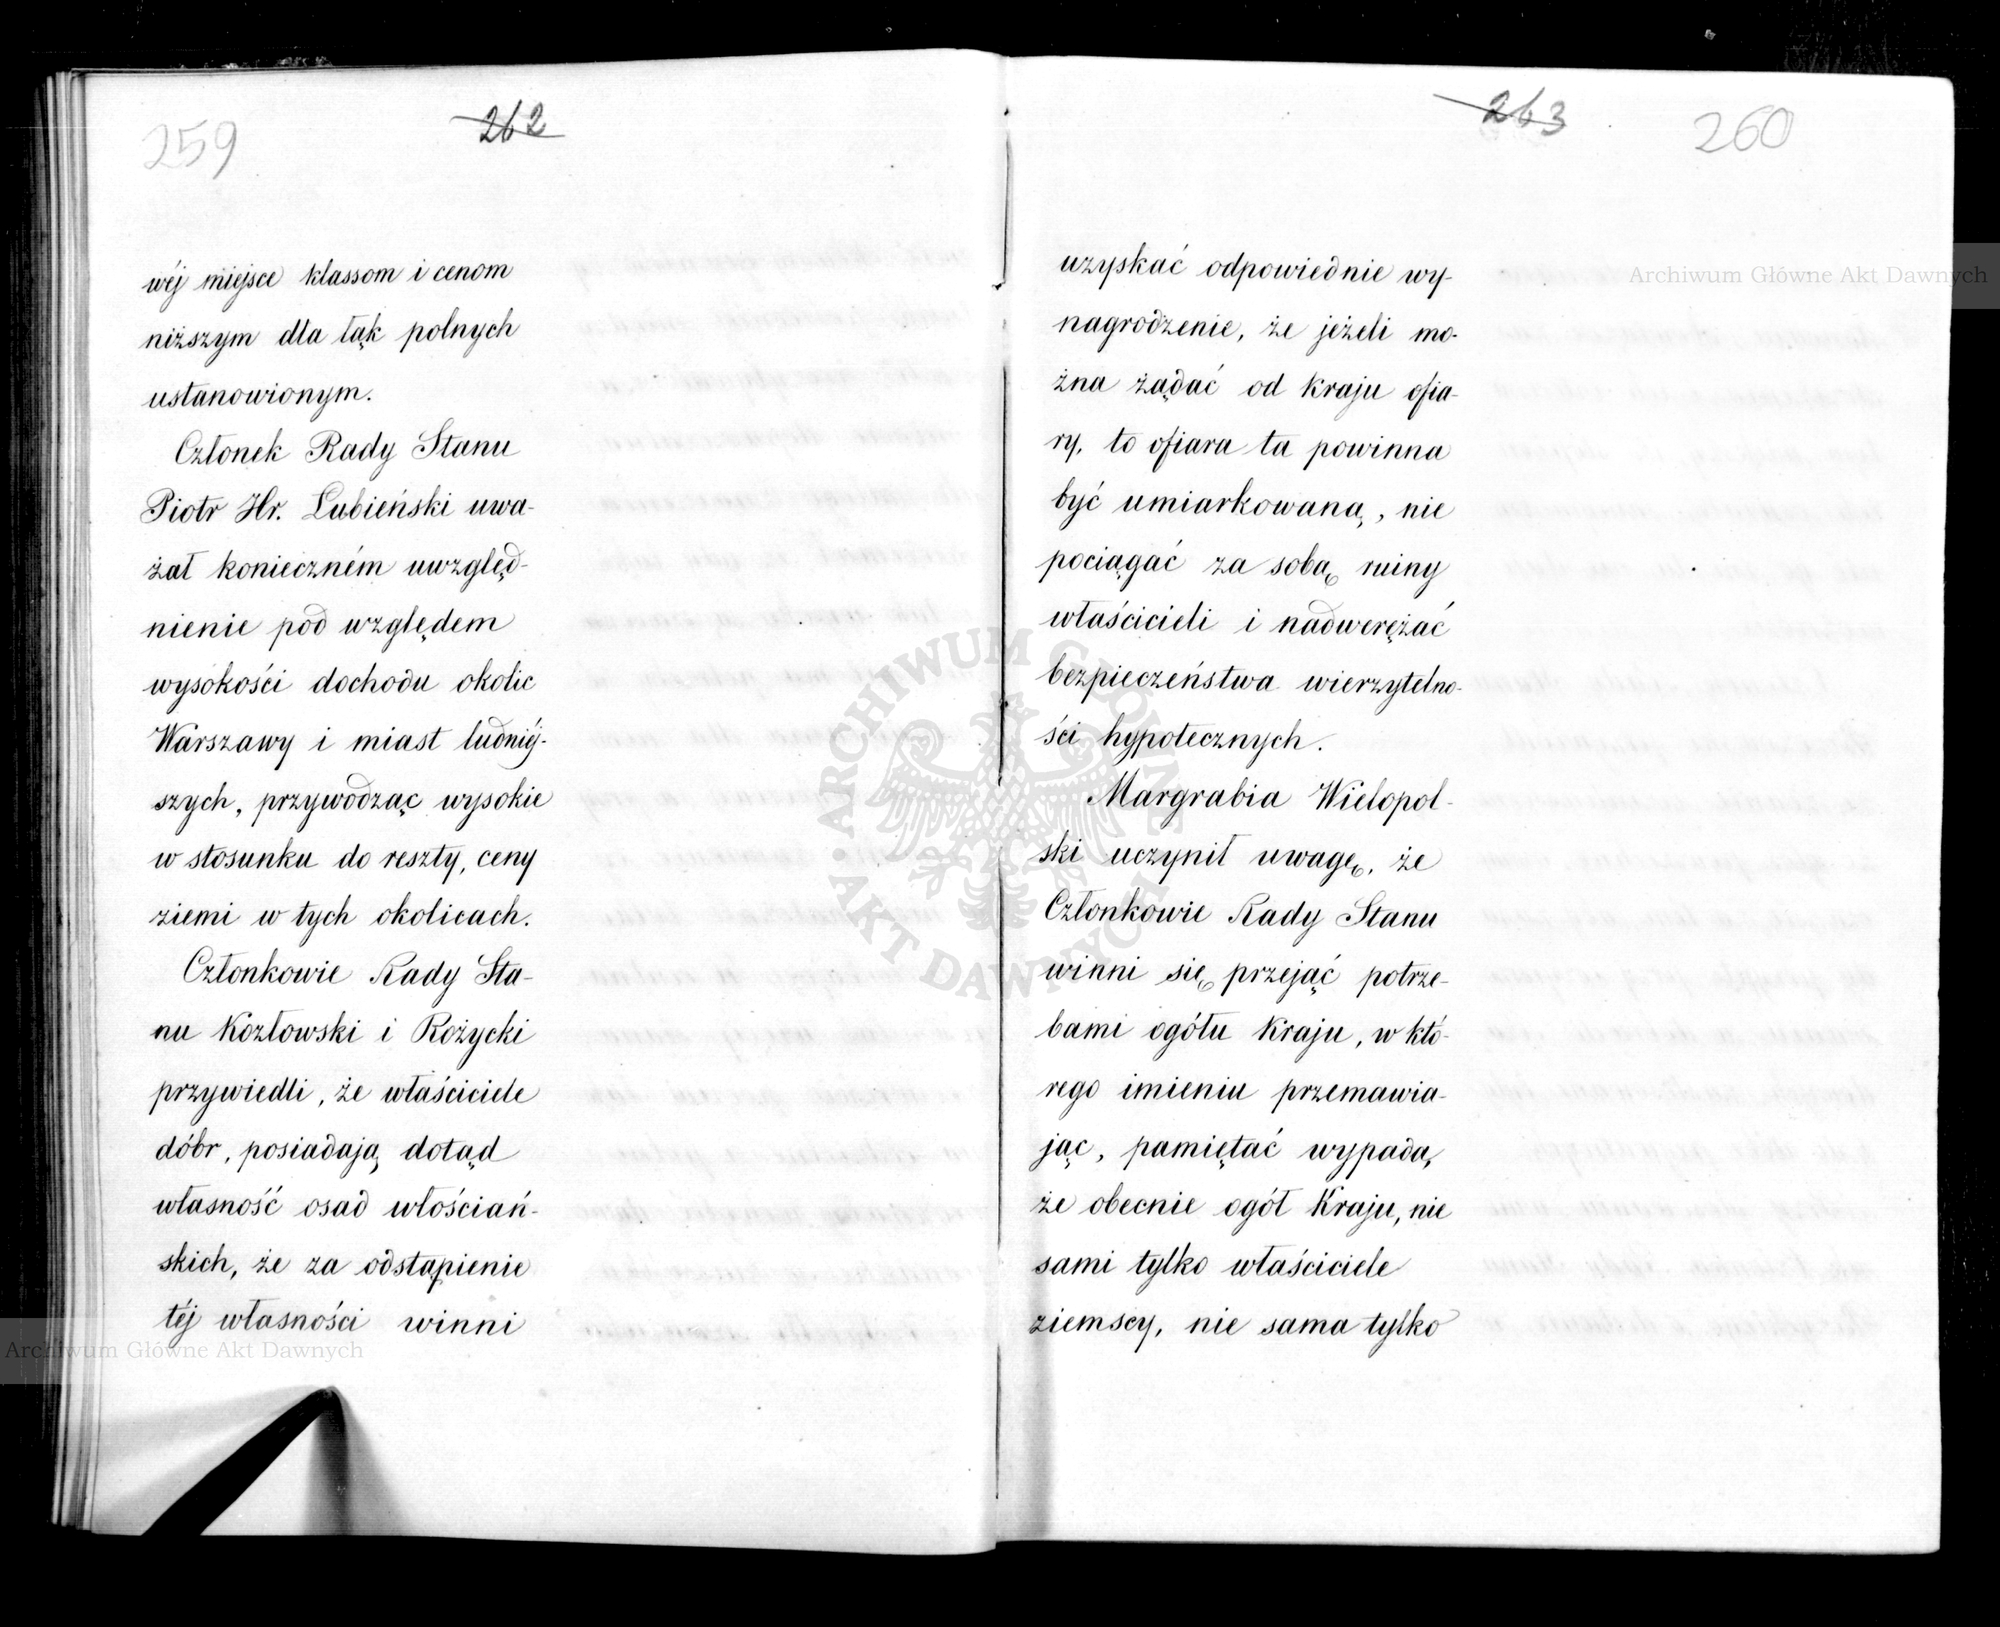 259
262
wéj miejsce klassom i cenom
niższym dla łąk polnych
ustanowionym.
Członek Rady Stanu
Piotr Hr. Łubieński uwa-
żał konieczném uwzględ-
nienie pod względem
wysokości dochodu okolic
Warszawy i miast ludniéj-
szych, przywodząc wysokie
w stosunku do reszty, ceny
ziemi w tych okolicach.
Członkowie Rady Sta-
nu Kozłowski i Rożycki
przywiedli, że właściciele
dóbr, posiadają dotąd
własność osad włościań-
skich, że za odstąpienie
téj własności winni
263
260
uzyskać odpowiednie wy-
nagrodzenie, że jeżeli mo-
żna żądać od Kraju ofia-
ry, to ofiara ta powinna
być umiarkowaną, nie
pociągać za sobą ruiny
właścicieli i nadwerężać
bezpieczeństwa wierzytelno-
ści hypotecznych.
Margrabia Wielopol-
ski uczynił uwagę, że
Członkowie Rady Stanu
winni się przejąć potrze-
bami ogółu Kraju, w któ-
rego imieniu przemawia-
jąc, pamiętać wypada,
że obecnie ogół Kraju, nie
sami tylko właściciele
ziemscy, nie sama tylko
Archiwum Główne Akt Dawnych
Archiwum Główne Akt Dawnych
ARCHIWUM GŁÓWNE
AKT DAWNYCH